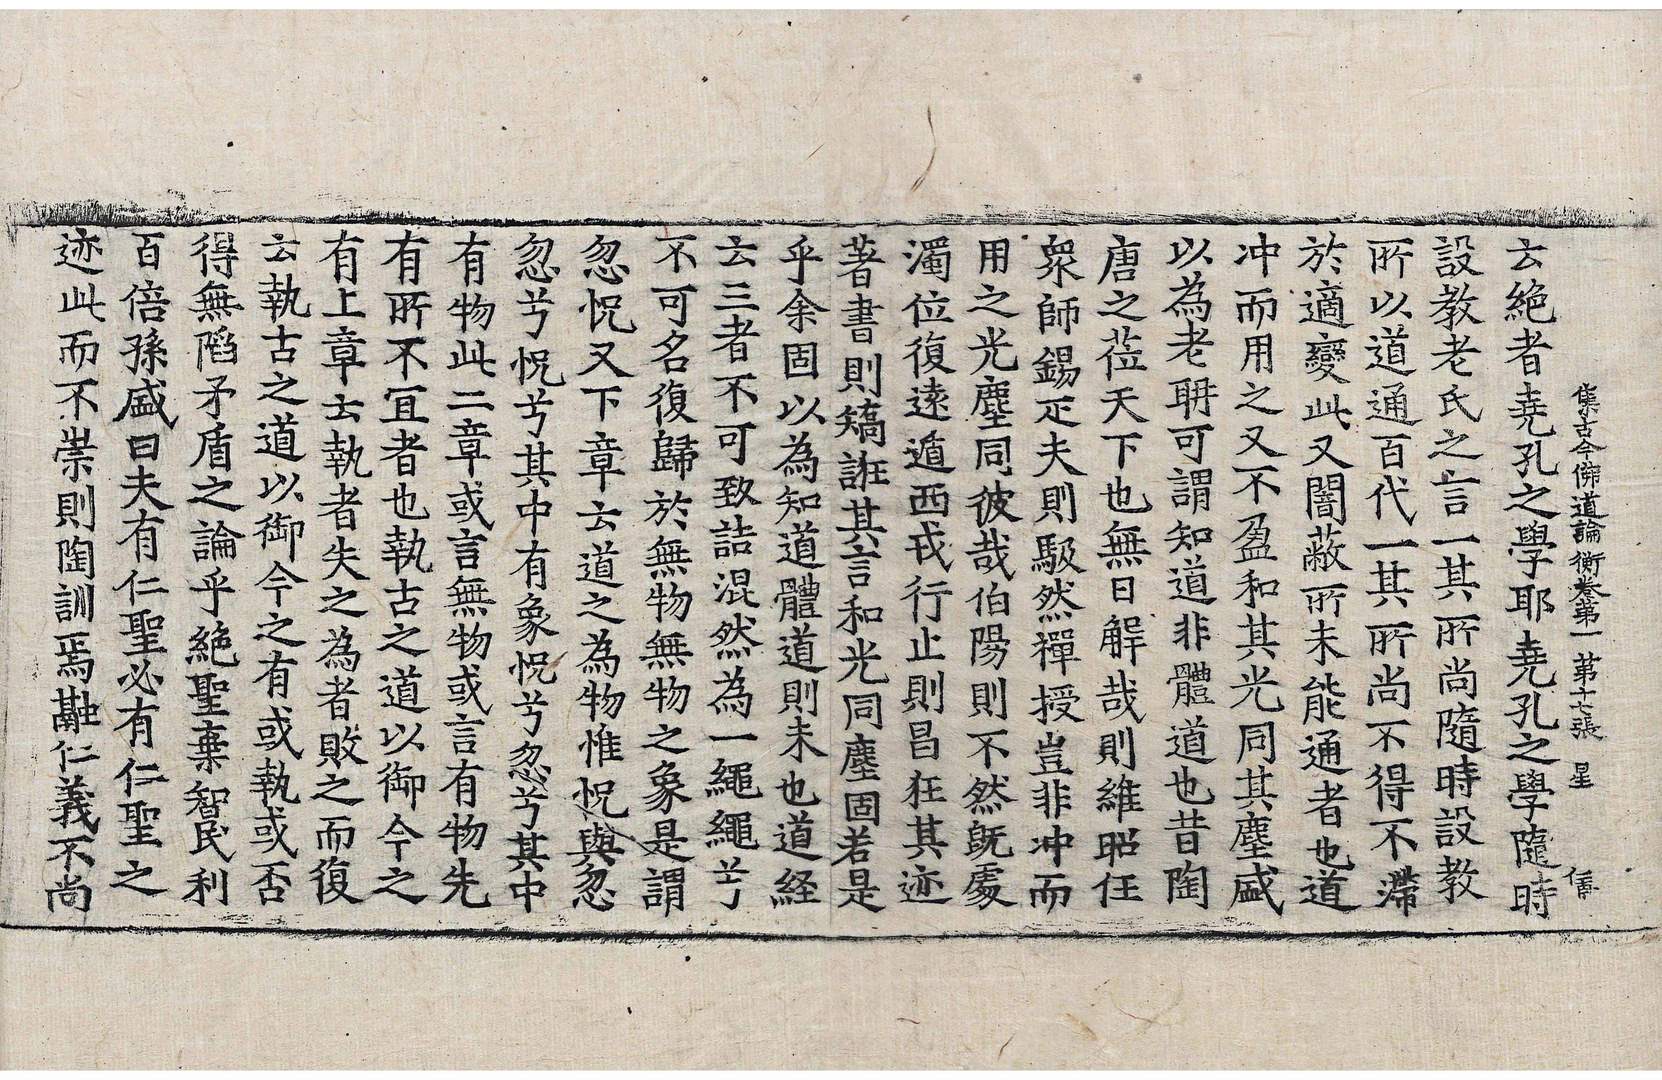 集古今佛道論衡卷第一 第十七張 星
云絶者堯孔之學耶堯孔之學隨時
設教老氏之言一其所尚隨時設教
所以道通百代一其所尚不得不滯
於適變此又闇蔽所未能通者也道
冲而用之又不盈和其光同其塵盛
以為老聃可謂知道非體道也昔陶
唐之莅天下也無日解哉則維昭任
衆師錫疋夫則馺然禪授豈非冲而
用之光塵同彼哉伯陽則不然旣處
濁位復遠遁西戎行止則昌狂其迹
著書則矯誑其言和光同塵固若是
乎余固以為知道體道則未也道経
云三者不可致詰混然為一繩繩兮
不可名復歸於無物無物之象是謂
忽怳又下章云道之為物惟怳與忽
忽兮怳兮其中有象怳兮忽兮其中
有物此二章或言無物或言有物先
有所不冝者也執古之道以御今之
有上章云執者失之為者敗之而復
云執古之道以御今之有或執或否
得無陷矛盾之論乎絶聖棄智民利
百倍孫盛曰夫有仁聖必有仁聖之
迹此而不崇則陶訓焉融仁義不尚